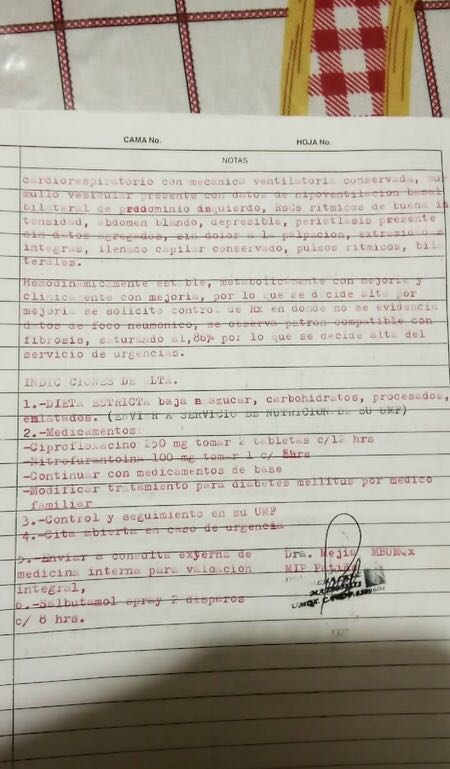 CAMA No. HOJA No.
NOTAS
cardiorespiratorio con mecanica ventilatoria conservada, mur
mullo vesicular presente con datos de hipoventilacion basal
bilateral de predominio izquierdo, ritmicos de buena in
tensidad, abdomen blando, depresible, peristlasis presente
sin datos agregados, sin dolor a la palpacion, extremidades
integras, llenado capilar conservado, pulsos ritmicos, bila
terales.
Hemodinamicamente est ble, metabolicamente con mejoria y
clinicamente con mejoria, por lo que se decide alta por
mejoria se solicito control de Rx en donde no se evidencia
datos de foco neumonico, se observa patron compatible con
fibrosis, saturando por lo que se decide alta del
servicio de urgencias.
INDIC CIONES DE ALTA.
1.-DIETA ESTRICTA baja n azucar, carbohidratos, procesados,
enlatados. (ENVI R A SERVICIO DE NUTRICION DE SU UMF)
2.-Medicamentos
-Ciprofloxacino 250 mg tomar 2 tabletas c/12 hrs
-Nitrofurantoina 100 mg tomar 1 c/ 8hrs
-Continuar con medicamentos de base
-Modificar tratamiento para diabetes mellitus por medico
familiar
3.-Control y seguimiento en su UMF
4.-Cita abierta en caso de urgencia
5.-Enviar a consulta exyerna de Dra. Mejia
medicina interna para valoacion MIP Patiño
integral,
6.-Salbutamol spray 2 disparos
c/ 8 hrs.